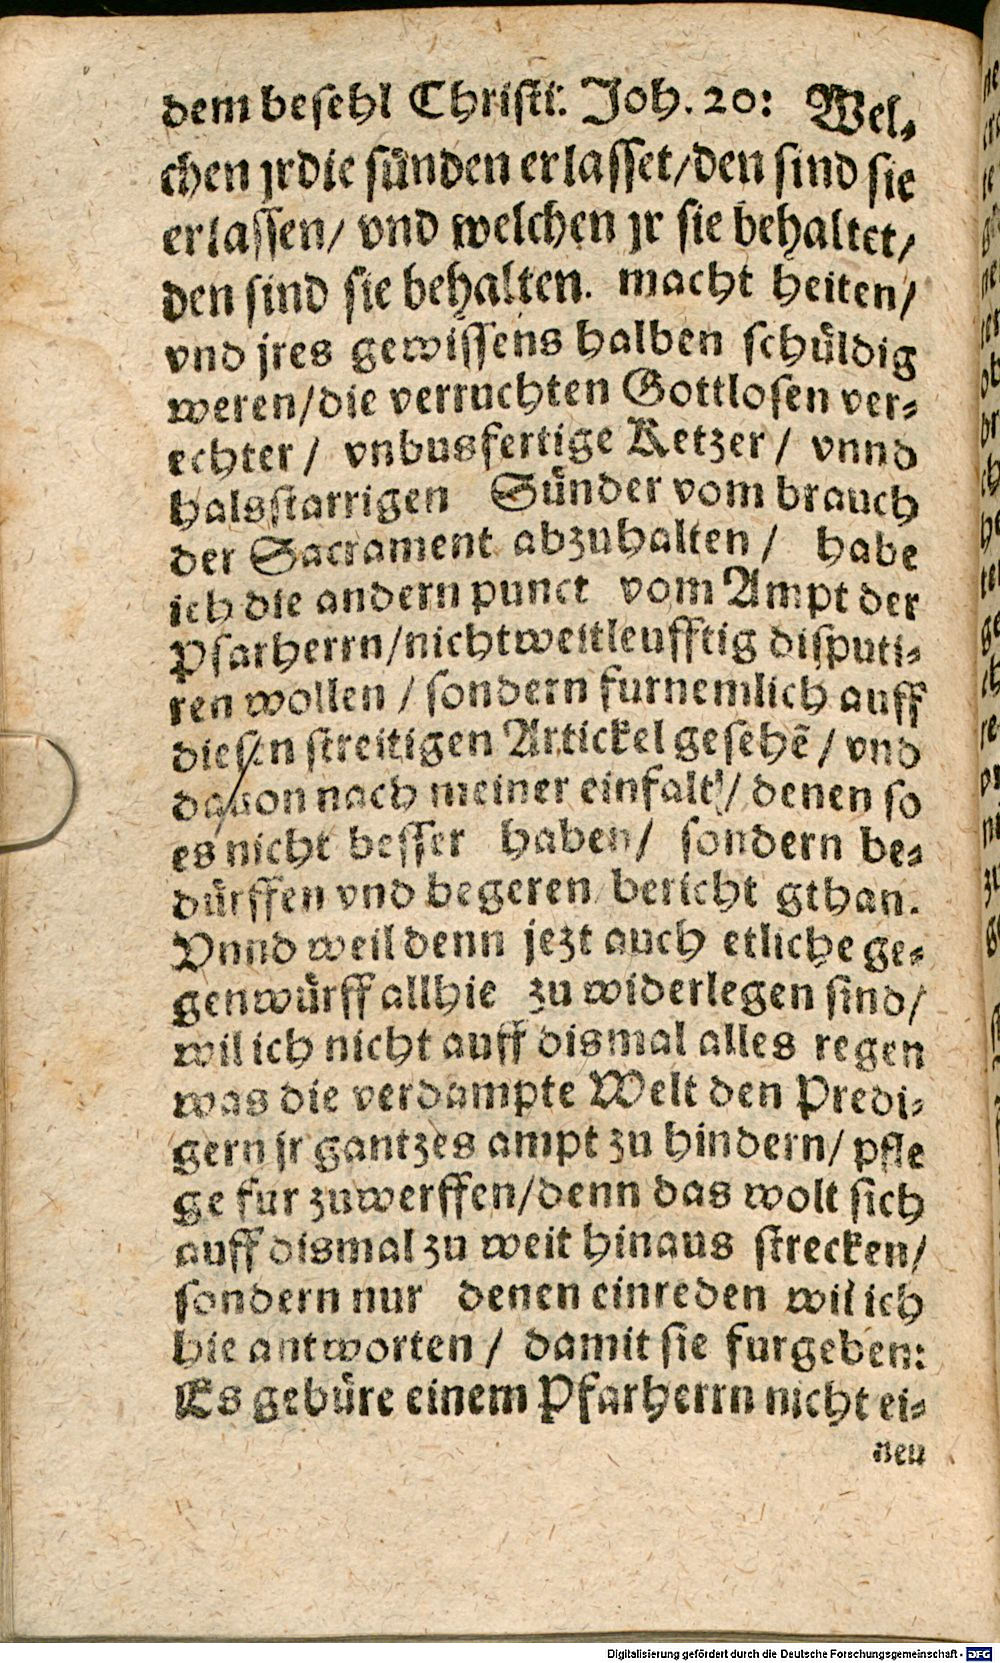 dem befehl Christi. Joh. 20: Wel-
chen jr die sünden erlasset/ den sind sie
erlassen/ vnd welchen jr sie behaltet/
den sind sie behalten. macht heiten/
vnd jres gewissens halben schüldig
weren/ die verruchten Gottlosen ver-
echter/ vnbusfertige Ketzer/ vnnd
halsstarrigen Sünder vom brauch
der Sacrament abzuhalten/ habe
ich die andern punct vom Ampt der
Pfarherrn/ nicht weitleufftig disputi-
ren wollen/ sondern furnemlich auff
diesen streitigen Artickel gesehẽ/ vnd
dauon nach meiner einfalt/ denen so
es nicht besser haben/ sondern be-
dürffen vnd begeren bericht gthan.
Vnnd weil denn jezt auch etliche ge-
genwürff allhie zu widerlegen sind/
wil ich nicht auff dismal alles regen
was die verdampte Welt den Predi-
gern jr gantzes ampt zu hindern/ pfle
ge fur zuwerffen/ denn das wolt sich
auff dismal zu weit hinaus strecken/
sondern nur denen einreden wil ich
hie antworten/ damit sie furgeben:
Es gebüre einem Pfarherrn nicht ei-
nen
Digitalisierung gefördert durch die Deutsche Forschungsgemeinschaft - DFG